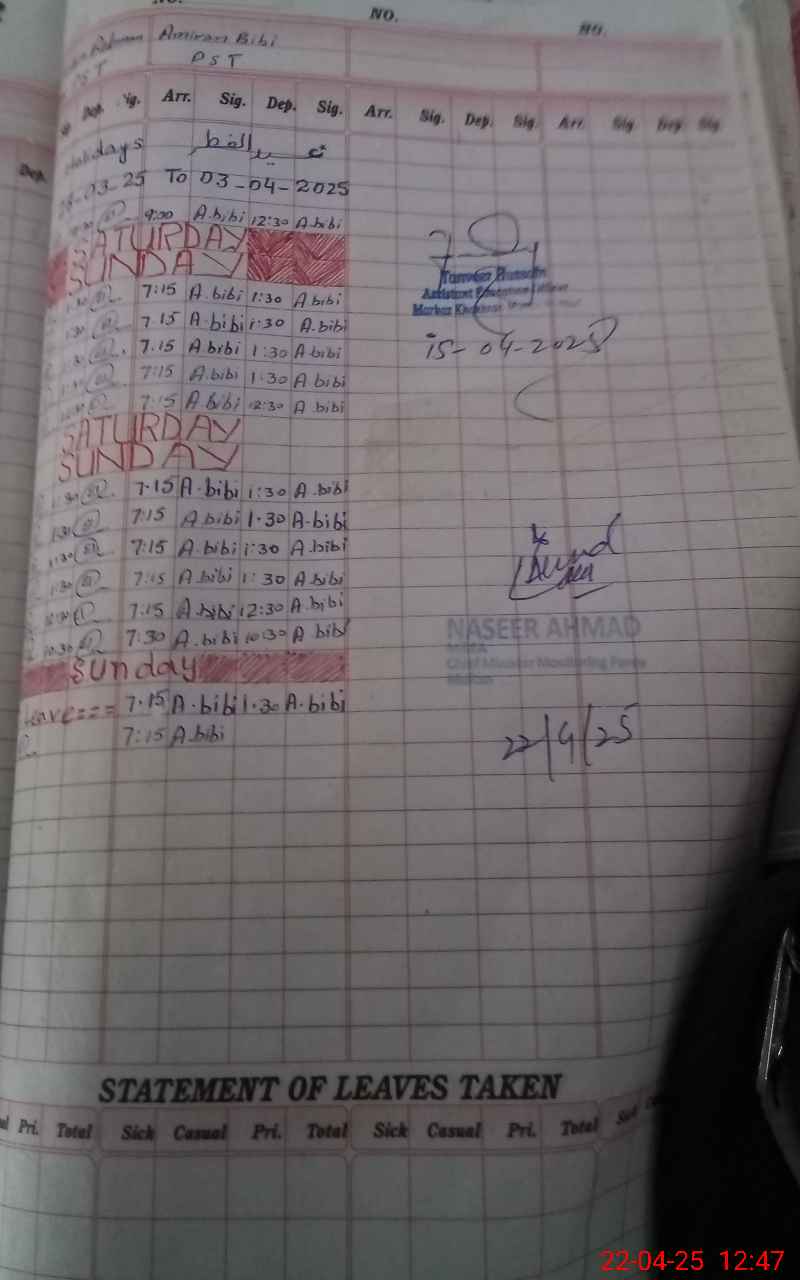 NO.
NO.
Amiran Bibi
PST
Dep. Sig. Arr. Sig. Dep. Sig. Arr. Sig. Dep. Sig. Arr. Sig. Dep. Sig.
Dep.
عید الفطر
03-25 To 03-04-2025
9:00 A.bibi 12:30 A.bibi
SATURDAY
SUNDAY
1:30 7:15 A.bibi 1:30 A.bibi
7.15 A.bibi 1:30 A.bibi
7.15 A.bibi 1:30 A.bibi
7:15 A.bibi 1:30 A bibi
7:15 A.bibi 12:30 A bibi
Tanveer Hussain
Assistant Education Officer
Markaz
15-04-2025
SATURDAY
SUNDAY
1:30 7.15 A.bibi 1:30 A.bibi
1:30 7:15 A.bibi 1.30 A.bibi
1:30 7:15 A.bibi 1:30 A.bibi
1:30 7:15 A.bibi 1:30 A.bibi
12:30 7:15 A.bibi 12:30 A.bibi
10:30 7:30 A.bibi 10:30 A bibi
NASEER AHMAD
MEA
Chief Minister Monitoring Force
Multan
Sunday
Leave=== 7.15 A.bibi 1.30 A.bibi
7:15 A.bibi
22/4/25
STATEMENT OF LEAVES TAKEN
Pri. Total Sick Casual Pri. Total Sick Casual Pri. Total Sick
22-04-25 12:47